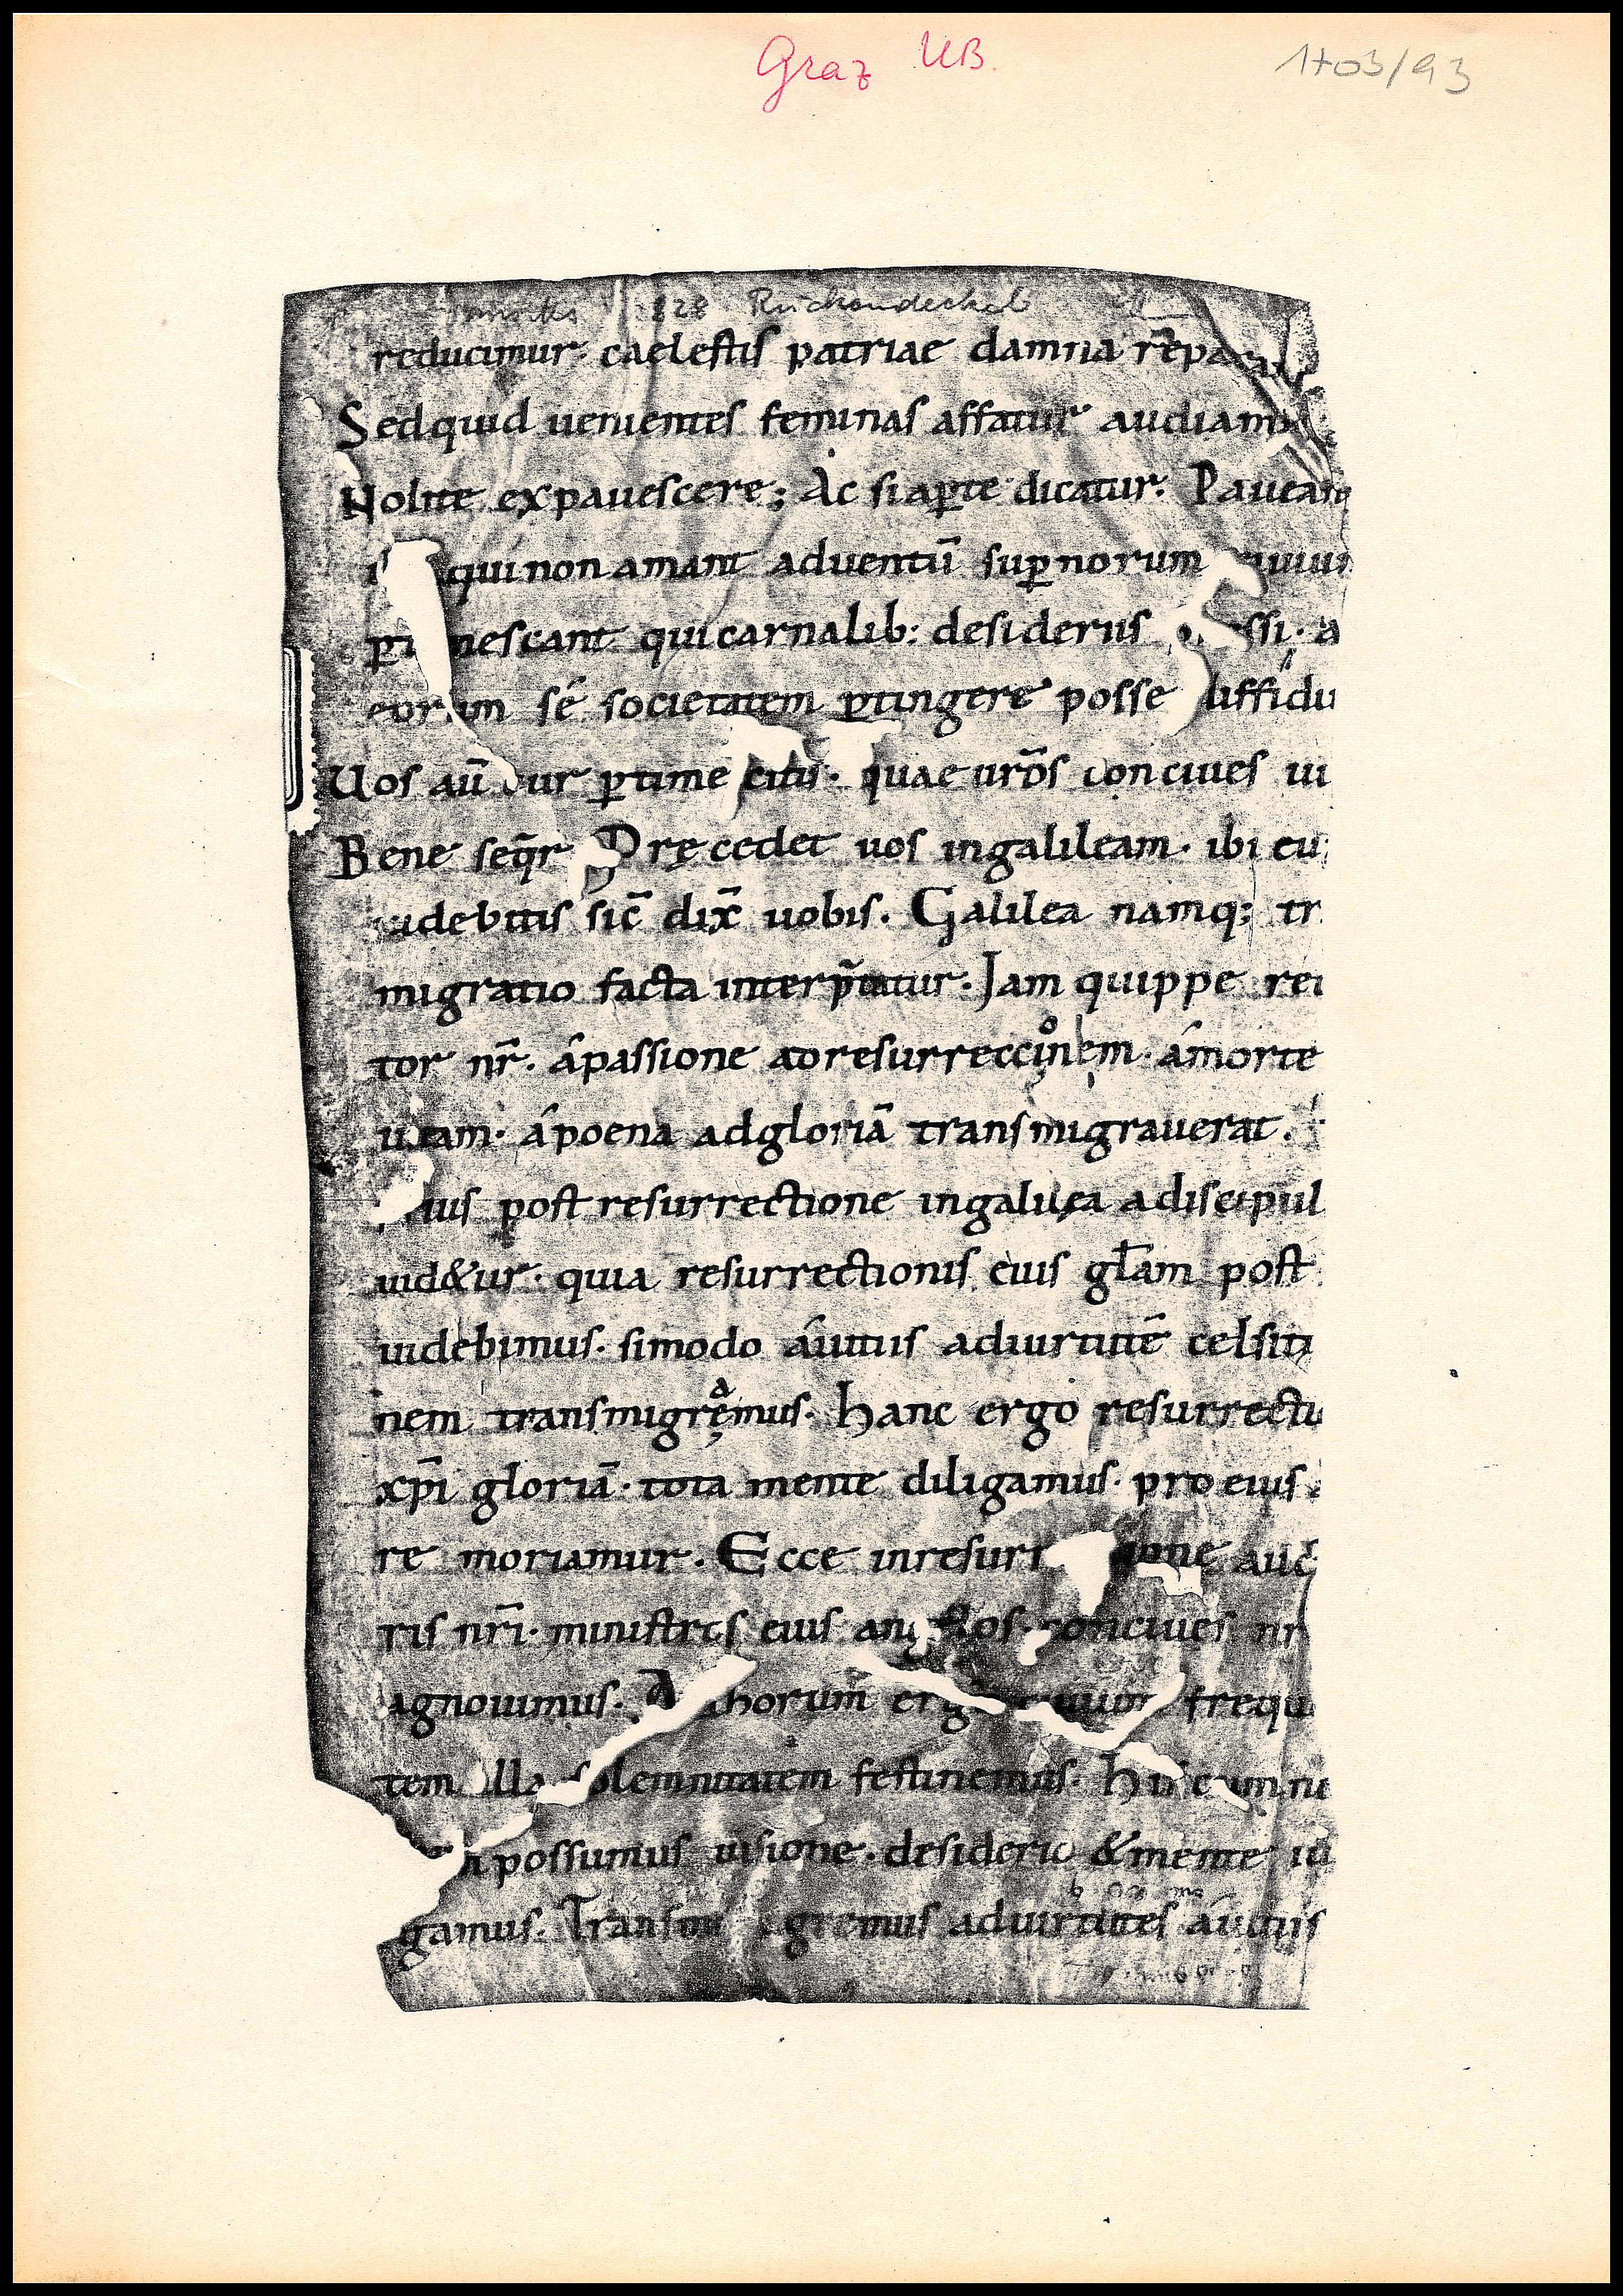 Graz UB.
1703/93
828 Rückendeckel
reducimur. caelestis patriae damna repa
Sedquid uenientes feminas affatur audiam
Nolite expauescere; Ac siap̲te dicatur. Paueant
quinon amant aduentū sup̲norum
nescant quicarnalib: desideriis ssi. a
eorum sé societatem p̲tingere posse diffidu
Uos aū cur p̲time citis. quae ur̄os conciues ui
Bene seq̄r Pręcedet uos ingalileam. ibi eu
uidebitis sic̄ dix̄ uobis. Galilea namq; tr
migratio facta interp̄tatur. Jam quippe re
tor nr̄. ápassione adresurreccionem. ámorte
uitam. ápoena adgloriā transmigrauerat.
ius post resurrectione ingalilea adiscipul
uid&ur. quia resurrectionis eius gl̄am post
uidebimus. simodo áuitiis aduirtutē celsitu
nem transmigremus. hanc ergo resurrecti
xp̄i gloriā. tota mente diligamus. pro eius
re moriamur. Ecce inresurr one auc
ris nr̄i. ministros eius an los. conciues nr
agnouimus. A horum ergo ciuium frequ
tem illa solemnitatem festinemus. his cum
n possumus uisione. desiderio &mente iu
gamus. Transmi gremus aduirtutes áuitiis